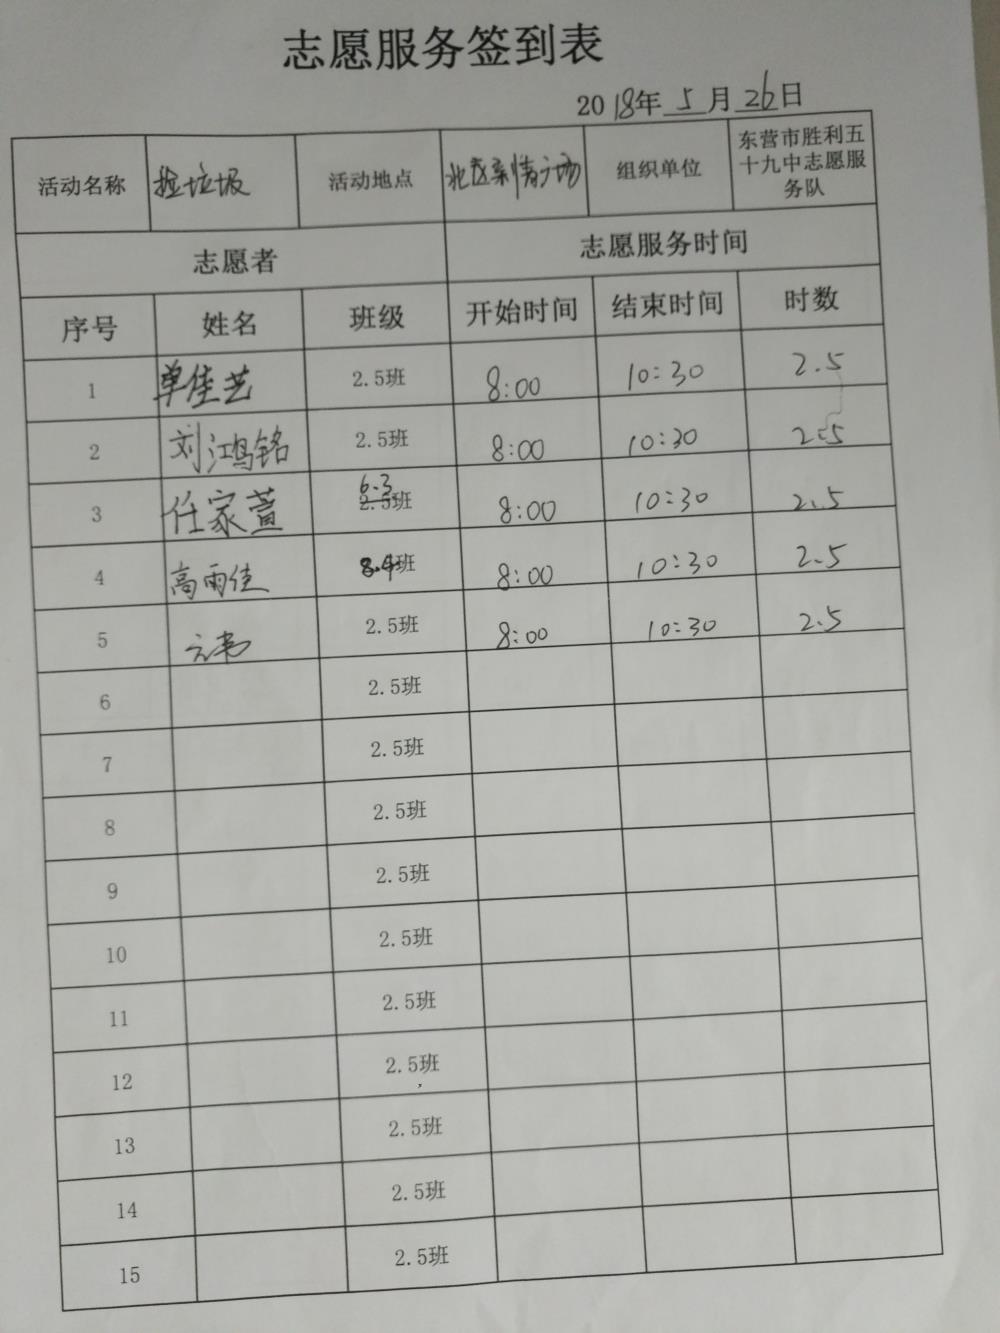 志愿服务签到表
2018年5月26日
活动名称 捡垃圾 活动地点 北区亲情广场 组织单位 东营市胜利五十九中志愿服务队
志愿者 志愿服务时间
序号 姓名 班级 开始时间 结束时间 时数
1 单佳艺 2.5班 8:00 10:30 2.5
2 刘鸿铭 2.5班 8:00 10:30 2.5
3 任家萱 6.3 2.5班 8:00 10:30 2.5
4 高雨佳 8.4班 8:00 10:30 2.5
5 2.5班 8:00 10:30 2.5
6 2.5班
7 2.5班
8 2.5班
9 2.5班
10 2.5班
11 2.5班
12 2.5班
13 2.5班
14 2.5班
15 2.5班